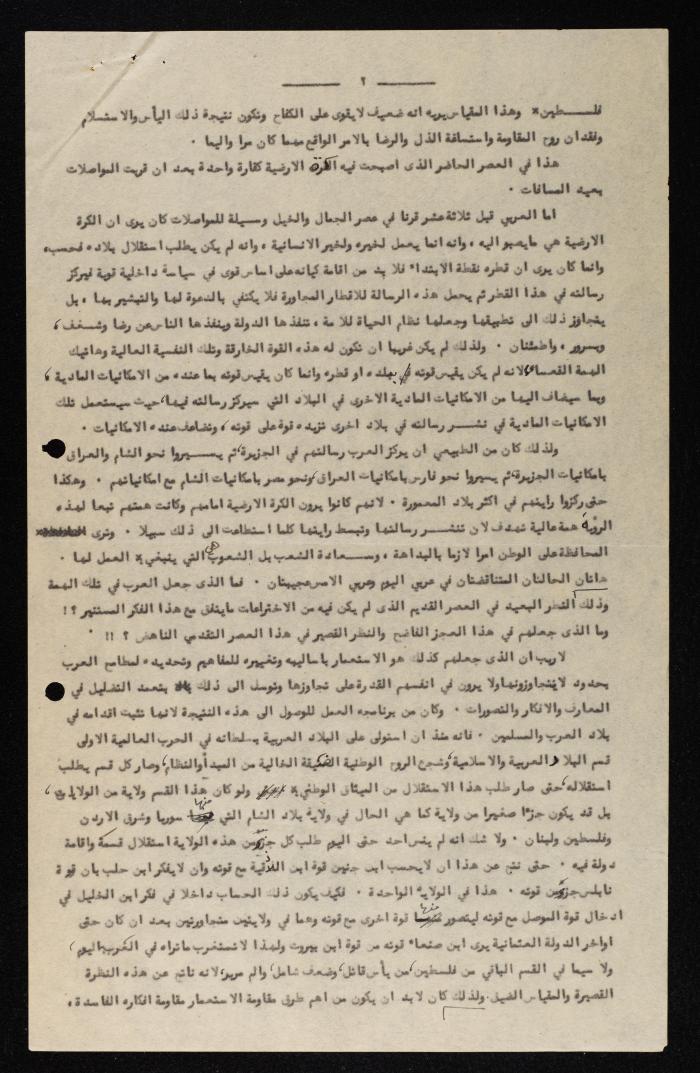 ٢
فلسطين وهذا المقياس يريه انه ضعيف لا يقوى على الكفاح وتكون نتيجة ذلك اليأس والاستسلام
وفقدان روح المقاومة واستساغة الذل والرضا بالامر الواقع مهما كان مرا واليما .
هذا في العصر الحاضر الذى اصبحت فيه الكرة الارضية كقارة واحدة بعد ان قربت المواصلات
بعيد المسافات .
اما العربي قبل ثلاثة عشر قرنا في عصر الجمال والخيل وسيلة للمواصلات كان يرى ان الكرة
الارضية هي ما يصبو اليه ، وانه انما يعمل لخيره ولخير الانسانية ، وانه لم يكن يطلب استقلال بلاده فحسب،
وانما كان يرى ان قطره نقطة الابتداء فلا بد من اقامة كيانه على اساس قوى في سياسة داخلية قوية فيركز
رسالته في هذا القطر ثم يحمل هذه الرسالة للاقطار المجاورة فلا يكتفي بالدعوة لها والتبشير بها ، بل
يتجاوز ذلك الى تطبيقها وجعلها نظام الحياة للامة ، تنفذها الدولة وينفذها الناس عن رضا وشغف ،
وبسرور ، واطمئنان . ولذلك لم يكن غريبا ان تكون له هذه القوة الخارقة وتلك النفسية العالية وهاتيك
الهمة القعساء لانه لم يكن يقيس قوته ببلده او قطره وانما كان يقيس قوته بما عنده من الامكانيات المادية ،
وبما سيضاف اليها من الامكانيات المادية الاخرى في البلاد التي سيركز رسالته فيها ، حيث سيستعمل تلك
الامكانيات المادية في نشر رسالته في بلاد اخرى تزيده قوة على قوته ، وتضاعف عنده الامكانيات .
ولذلك كان من الطبيعي ان يركز العرب رسالتهم في الجزيرة ، ثم يسيروا نحو الشام والعراق
بامكانيات الجزيرة ، ثم يسيروا نحو فارس بامكانيات العراق ، ونحو مصر بامكانيات الشام مع امكانياتهم . وهكذا
حتى ركزوا رايتهم في اكثر بلاد المعمورة . لانهم كانوا يرون الكرة الارضية امامهم وكانت همتهم تبعا لهذه
الرؤية همة عالية تهدف لان تنشر رسالتها وتبسط رايتها كلما استطاعت الى ذلك سبيلا . وترى
المحافظة على الوطن امرا لازما بالبداهة ، وسعادة الشعب بل الشعوب هي التي ينبغي العمل لها .
هاتان الحالتان المتناقضتان في عربي اليوم وعربي الامس عجيبتان . فما الذى جعل العرب في تلك الهمة
وذلك النظر البعيد في العصر القديم الذى لم يكن فيه من الاختراعات ما يتفق مع هذا الفكر المستنير ؟ !
وما الذى جعلهم في هذا العجز الفاضح والنظر القصير في هذا العصر التقدمي الناهض ؟ !!
لا ريب ان الذى جعلهم كذلك هو الاستعمار باساليبه وتغييره للمفاهيم وتحديده لمطامح العرب
بحدود لا يتجاوزونها ولا يرون في انفسهم القدرة على تجاوزها وتوسل الى ذلك بتعمد التضليل في
المعارف والافكار والتصورات . وكان من برنامجه العمل للوصول الى هذه النتيجة لانها تثبت اقدامه في
بلاد العرب والمسلمين . فانه منذ ان استولى على البلاد العربية بسلطانه في الحرب العالمية الاولى
قسم البلاد العربية والاسلامية ، وشجع الروح الوطنية الضيقة الخالية من المبدأ والنظام ، وصار كل قسم يطلب
استقلاله ، حتى صار طلب هذا الاستقلال من الميثاق الوطني ولو كان هذا القسم ولاية من الولايات ،
بل قد يكون جزءا صغيرا من ولاية كما هي الحال في ولاية بلاد الشام التي منها سوريا وشرق الاردن
وفلسطين ولبنان . ولا شك انه لم ينس احد حتى اليوم طلب كل جزء من هذه الولاية استقلال قسمه واقامة
دولة فيه . حتى نتج عن هذا ان لا يحسب ابن جنين قوة ابن اللاذقية مع قوته وان لا يفكر ابن حلب بان قوة
نابلس جزء من قوته . هذا في الولاية الواحدة . فكيف يكون ذلك الحساب داخلا في فكر ابن الخليل في
ادخال قوة الموصل مع قوته ليتصور منها قوة اخرى مع قوته وهما في ولايتين متجاورتين بعد ان كان حتى
اواخر الدولة العثمانية يرى ابن صنعاء قوته من قوة ابن بيروت ولهذا لا تستغرب ما تراه في العرب اليوم ،
ولا سيما في القسم الباقي من فلسطين ، من يأس قاتل ، وضعف شامل ، والم مرير ، لانه ناتج عن هذه النظرة
القصيرة والمقياس الضيق . ولذلك كان لا بد ان يكون من اهم طرق مقاومة الاستعمار مقاومة افكاره الفاسدة ،